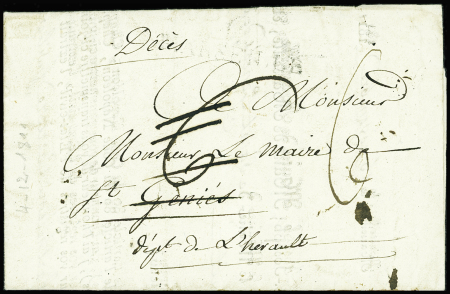 Décès
Monsieur
Monsieur Le maire de
St Géniés
dépt de L'herault